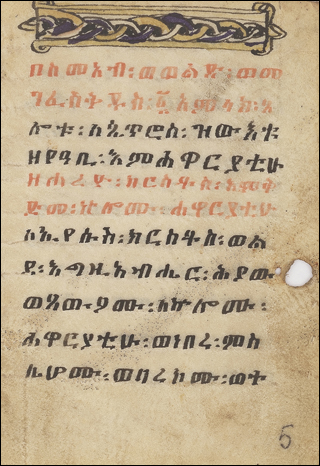 በስመ፡አብ፡ወወልድ፡ወመ
ንፈስ፡ቅዱስ፡፩፡አምላክ፡ጸ
ሎቱ፡ለጴጥሮስ፡ዝውእቱ
ዘየዓቢ፡እምሐዋርያቲሁ
ዘሐረዮ፡ክርስቶስ፡እምቅ
ድመ፡ኵሎሙ፡ሐዋርያቲሁ
ለኢየሱስ፡ክርስቶስ፡ወል
ደ፡እግዚአብሔር፡ሕያው
ወጸውዖሙ፡ለኵሎሙ፡
ሐዋርያቲሁ፡ወነበረ፡ምስ
ሌሆሙ፡ወባረኮሙ፡ወት
5